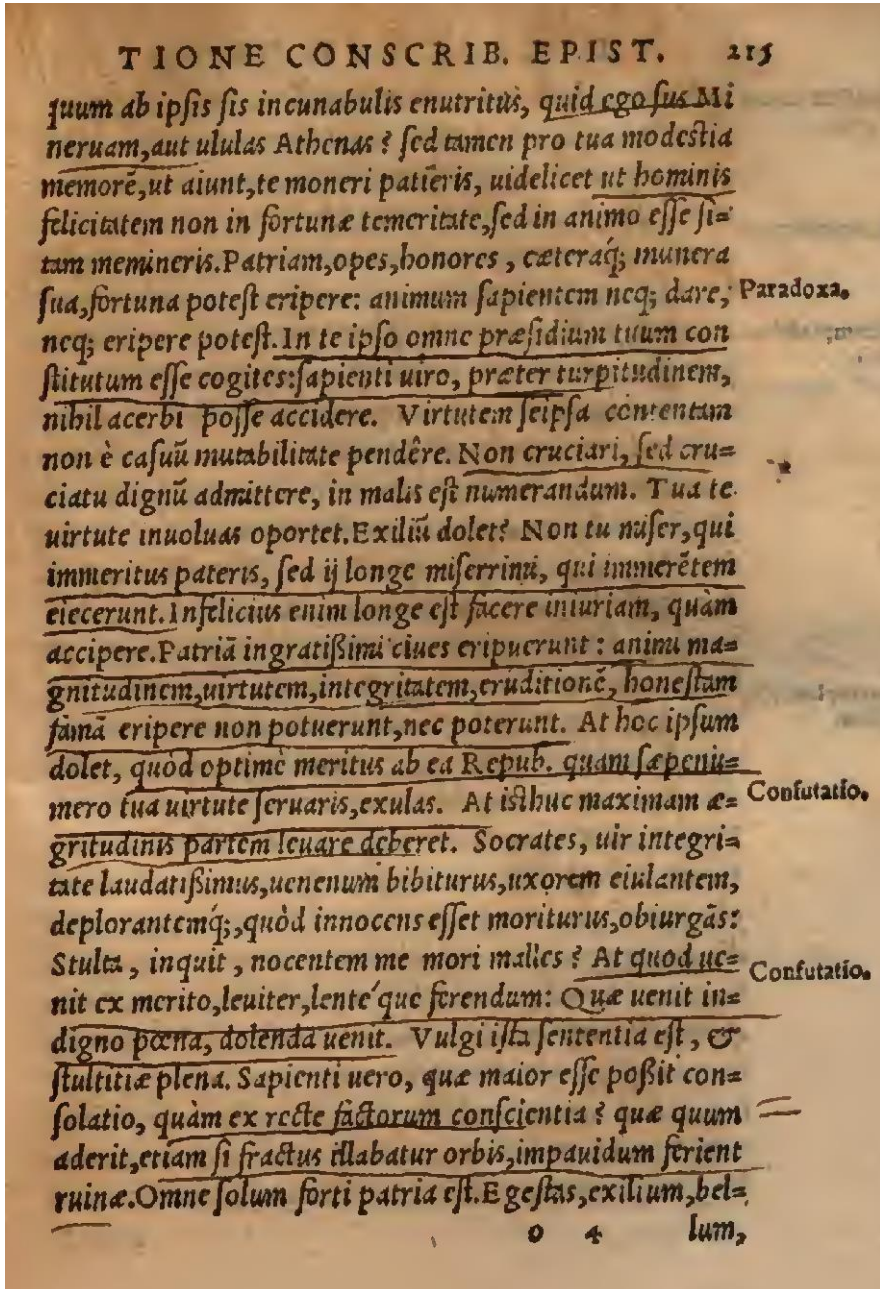 TIONE CONSCRIB. EPIST. 215
quum ab ipſis ſis incunabulis enutritus, quid ego ſus Mi
neruam, aut ululas Athenas? ſed tamen pro tua modeſtia
memorē, ut aiunt, te moneri patiêris, uidelicet ut hominis
felicitatem non in fortunæ temeritate, ſed in animo eſſe ſi=
tam memineris. Patriam, opes, honores, cæteraq́; munera
ſua, fortuna poteſt eripere: animum ſapientem neq; dare, Paradoxa.
neq; eripere poteſt. In te ipſo omne præſidium tuum con
ſtitutum eſſe cogites: ſapienti uiro, præter turpitudinem,
nihil acerbi poſſe accidere. Virtutem ſeipſa contentam
non è caſuū mutabilitate pendêre. Non cruciari, ſed cru=
ciatu dignū admittere, in malis eſt numerandum. Tua te
uirtute inuoluas oportet. Exiliū dolet? Non tu miſer, qui
immeritus pateris, ſed ij longe miſerrimi, qui immerētem
eiecerunt. Infelicius enim longe eſt facere iniuriam, quàm
accipere. Patriā ingratißimi ciues eripuerunt: animi ma=
gnitudinem, uirtutem, integritatem, eruditionē, honeſtam
famā eripere non potuerunt, nec poterunt. At hoc ipſum
dolet, quòd optimè meritus ab ea Repub. quam ſæpenu=
mero tua uirtute ſeruaris, exulas. At iſthuc maximam æ= Confutatio.
gritudinis partem leuare deberet. Socrates, uir integri=
tate laudatißimus, uenenum bibiturus, uxorem eiulantem,
deplorantemq́;, quòd innocens eſſet moriturus, obiurgās:
Stulta, inquit, nocentem me mori malles? At quod ue= Confutatio.
nit ex merito, leuiter, lente´que ferendum: Quæ uenit in=
digno pœna, dolenda uenit. Vulgi iſta ſententia eſt, &
ſtultitiæ plena. Sapienti uero, quæ maior eſſe poßit con=
ſolatio, quàm ex recte factorum conſcientia? quæ quum
aderit, etiam ſi fractus illabatur orbis, impauidum ferient
ruinæ. Omne ſolum forti patria eſt. Egeſtas, exilium, bel=
o 4 lum,